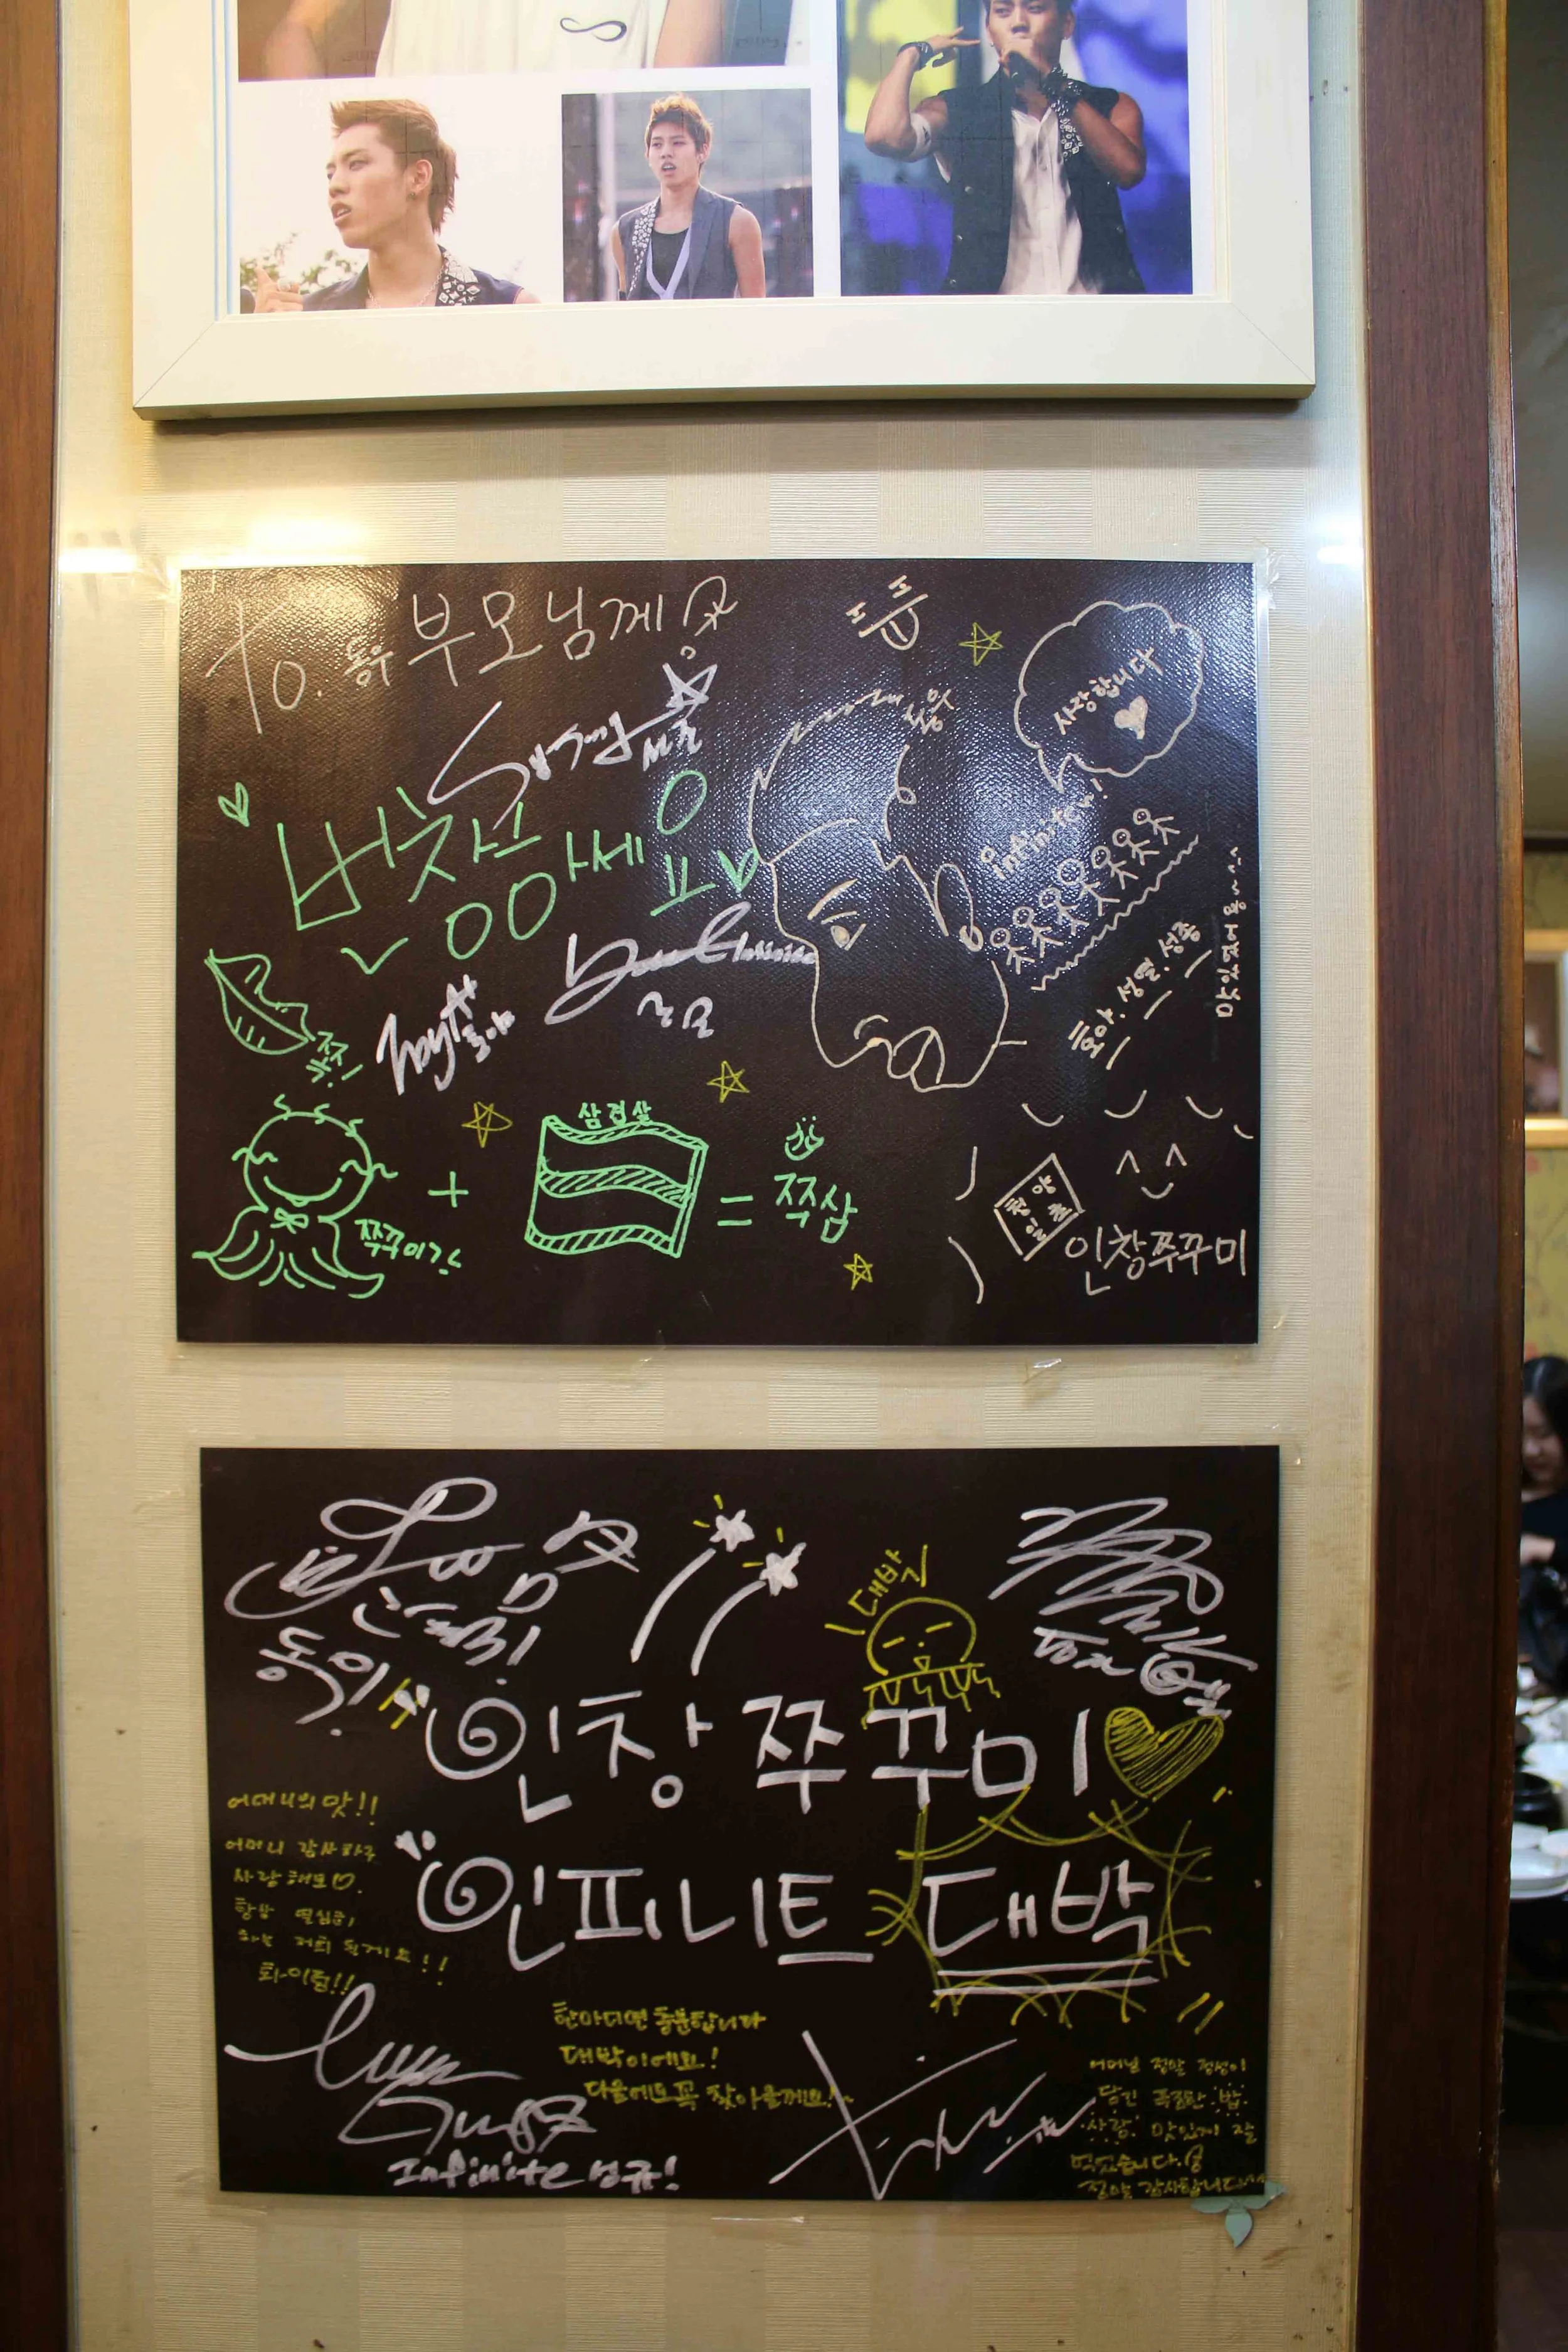 To. 동우 부모님께
뿐
사랑합니다
번창
하세요
infinite!
호야
엘
호야. 성열. 성종
맛있었어용~^^
쪽!
삼겹살
쭈꾸미
+
=
쭈삼
인창쭈꾸미
대박
동우
인창쭈꾸미
인피니트 대박
어머니의 맛!!
어머니 감사하구
사랑해요
항상 열심히
하는 저희 될게요!!
화이팅!!
한마디면 충분합니다
대박이에요!
다음에도 꼭 찾아올께요!~
Infinite 성규!
어머님 정말 정성이
담긴 푸짐한 밥.
사랑. 맛있게 잘
먹었습니다.
정말 감사합니다^^